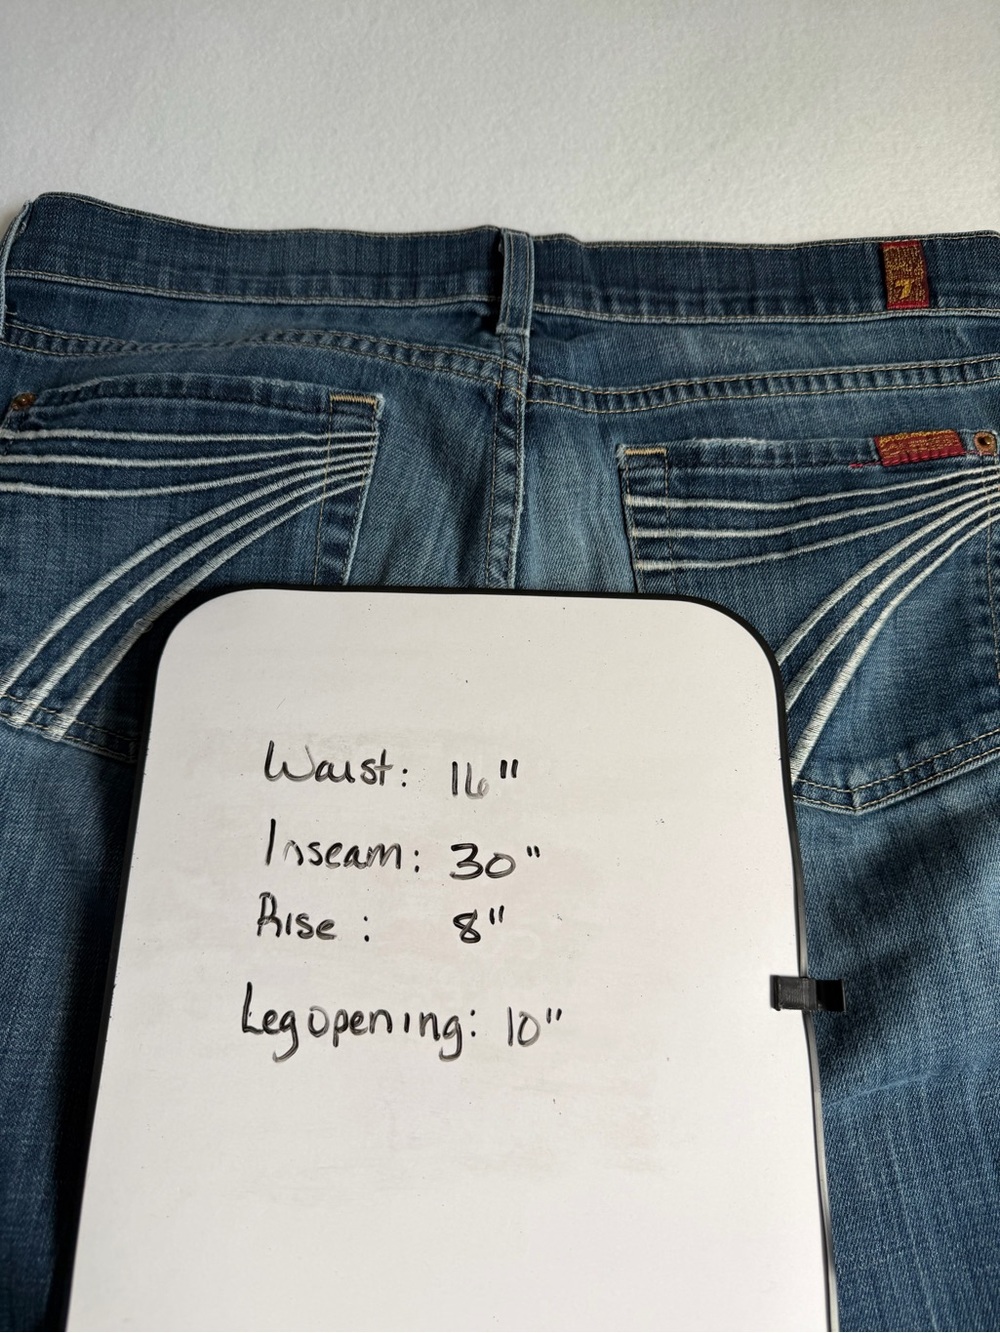 Waist: 16"
Inseam: 30"
Rise: 8"
Leg opening: 10"
7